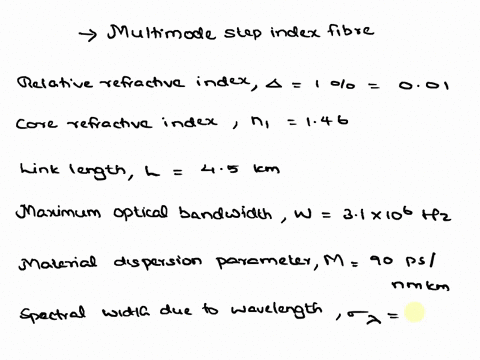 → Multimode step index fibre
Relative refractive index, Δ = 1 % = 0.01
Core refractive index, n₁ = 1.46
Link length, L = 4.5 km
Maximum optical bandwidth, W = 3.1 × 10⁶ Hz
Material dispersion parameter, M = 90 ps/
nm km
Spectral width due to wavelength, σλ =